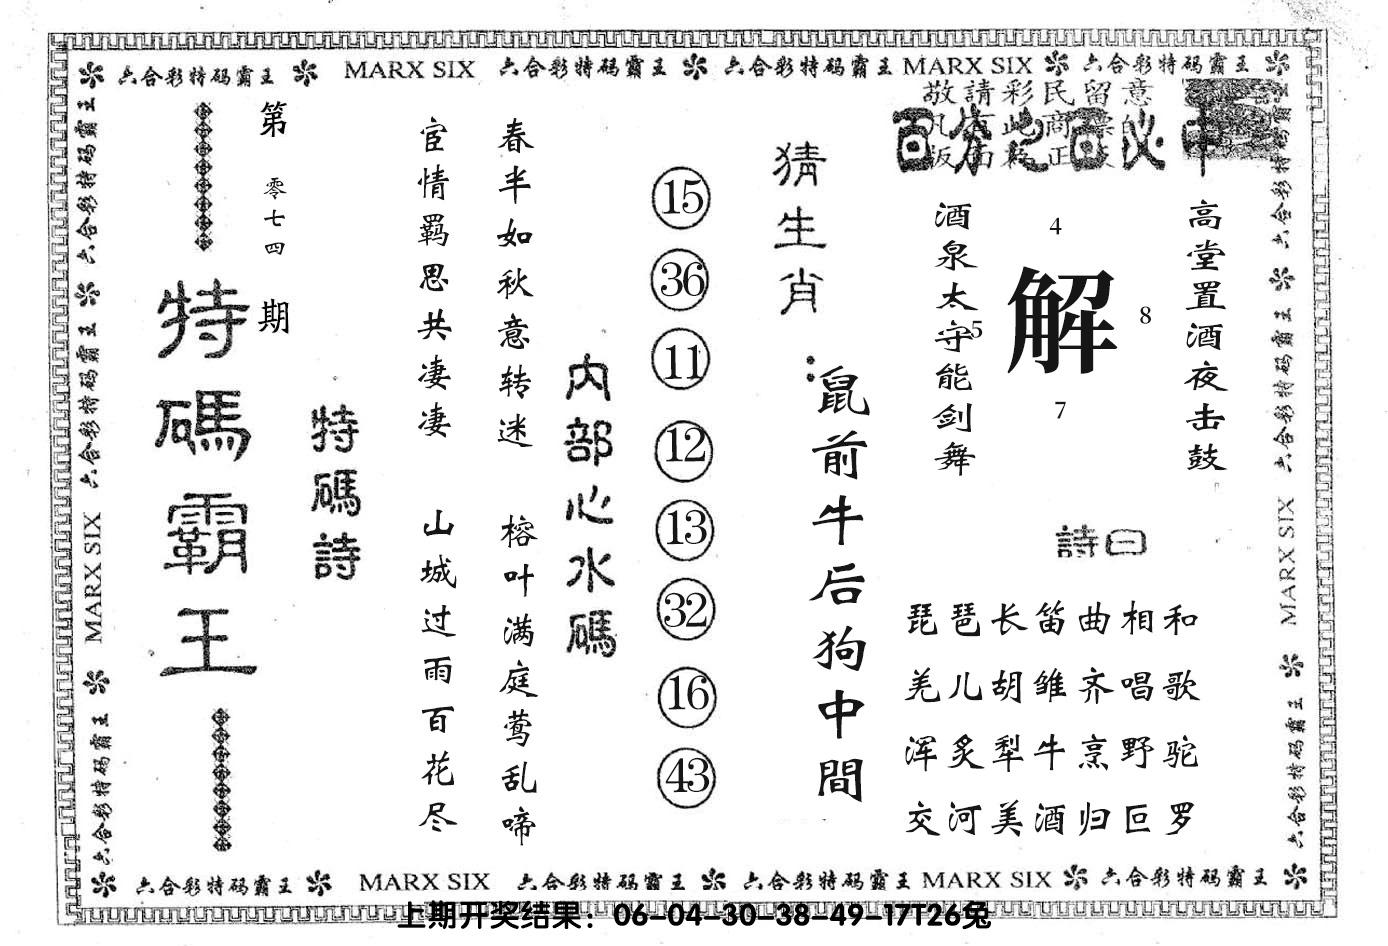 六合彩特码霸王 MARX SIX 六合彩特码霸王 六合彩特码霸王 MARX SIX 六合彩特码霸王
敬請彩民留意
高堂置酒夜击鼓
酒泉太守能剑舞
4
5
解
8
7
詩曰
琵琶长笛曲相和
羌儿胡雏齐唱歌
浑炙犁牛烹野驼
交河美酒归叵罗
猜生肖：
鼠前牛后狗中間
15
36
11
12
13
32
16
43
内部心水碼
春半如秋意转迷
宦情羁思共凄凄
山城过雨百花尽
榕叶满庭莺乱啼
特碼詩
第零七四期
特碼霸王
六合彩特码霸王
六合彩特码霸王
MARX SIX
六合彩特码霸王
六合彩特码霸王
六合彩特码霸王
MARX SIX
六合彩特码霸王
六合彩特码霸王 MARX SIX 六合彩特码霸王 六合彩特码霸王 MARX SIX 六合彩特码霸王
上期开奖结果：06-04-30-38-49-17T26兔